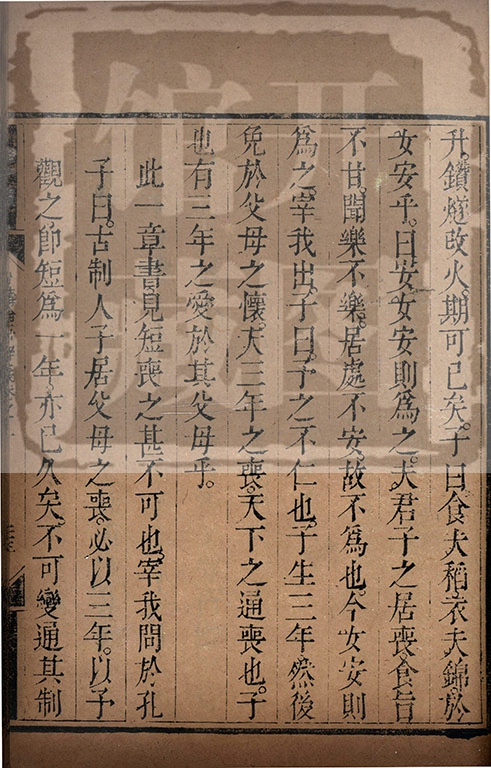 升。鑽燧改火。期可已矣。子曰。食夫稻。衣夫錦。於
女安乎。曰。安。女安則爲之。夫君子之居喪。食旨
不甘。聞樂不樂。居處不安。故不爲也。今女安則
爲之。宰我出。子曰。予之不仁也。子生三年然後
免於父母之懷。夫三年之喪。天下之通喪也。予
也有三年之愛於其父母乎。
此一章書見短喪之甚不可也。宰我問於孔
子曰。古制人子居父母之喪。必以三年。以予
觀之。卽短爲一年。亦已久矣。不可變通其制